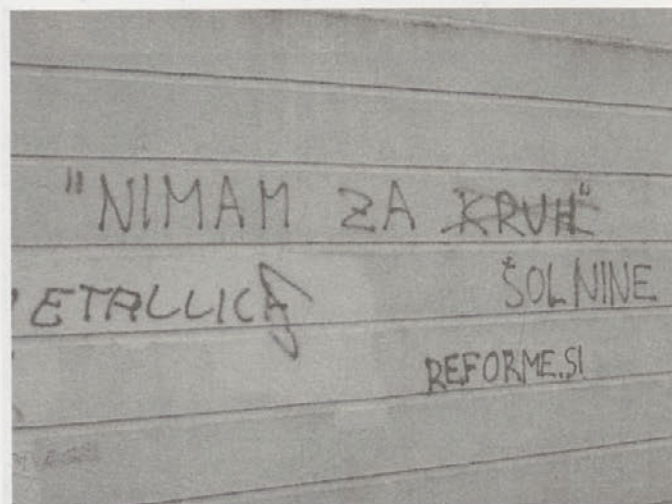 "NIMAM ZA KRUH"
ETALLICA
ŠOLNINE
REFORME.SI